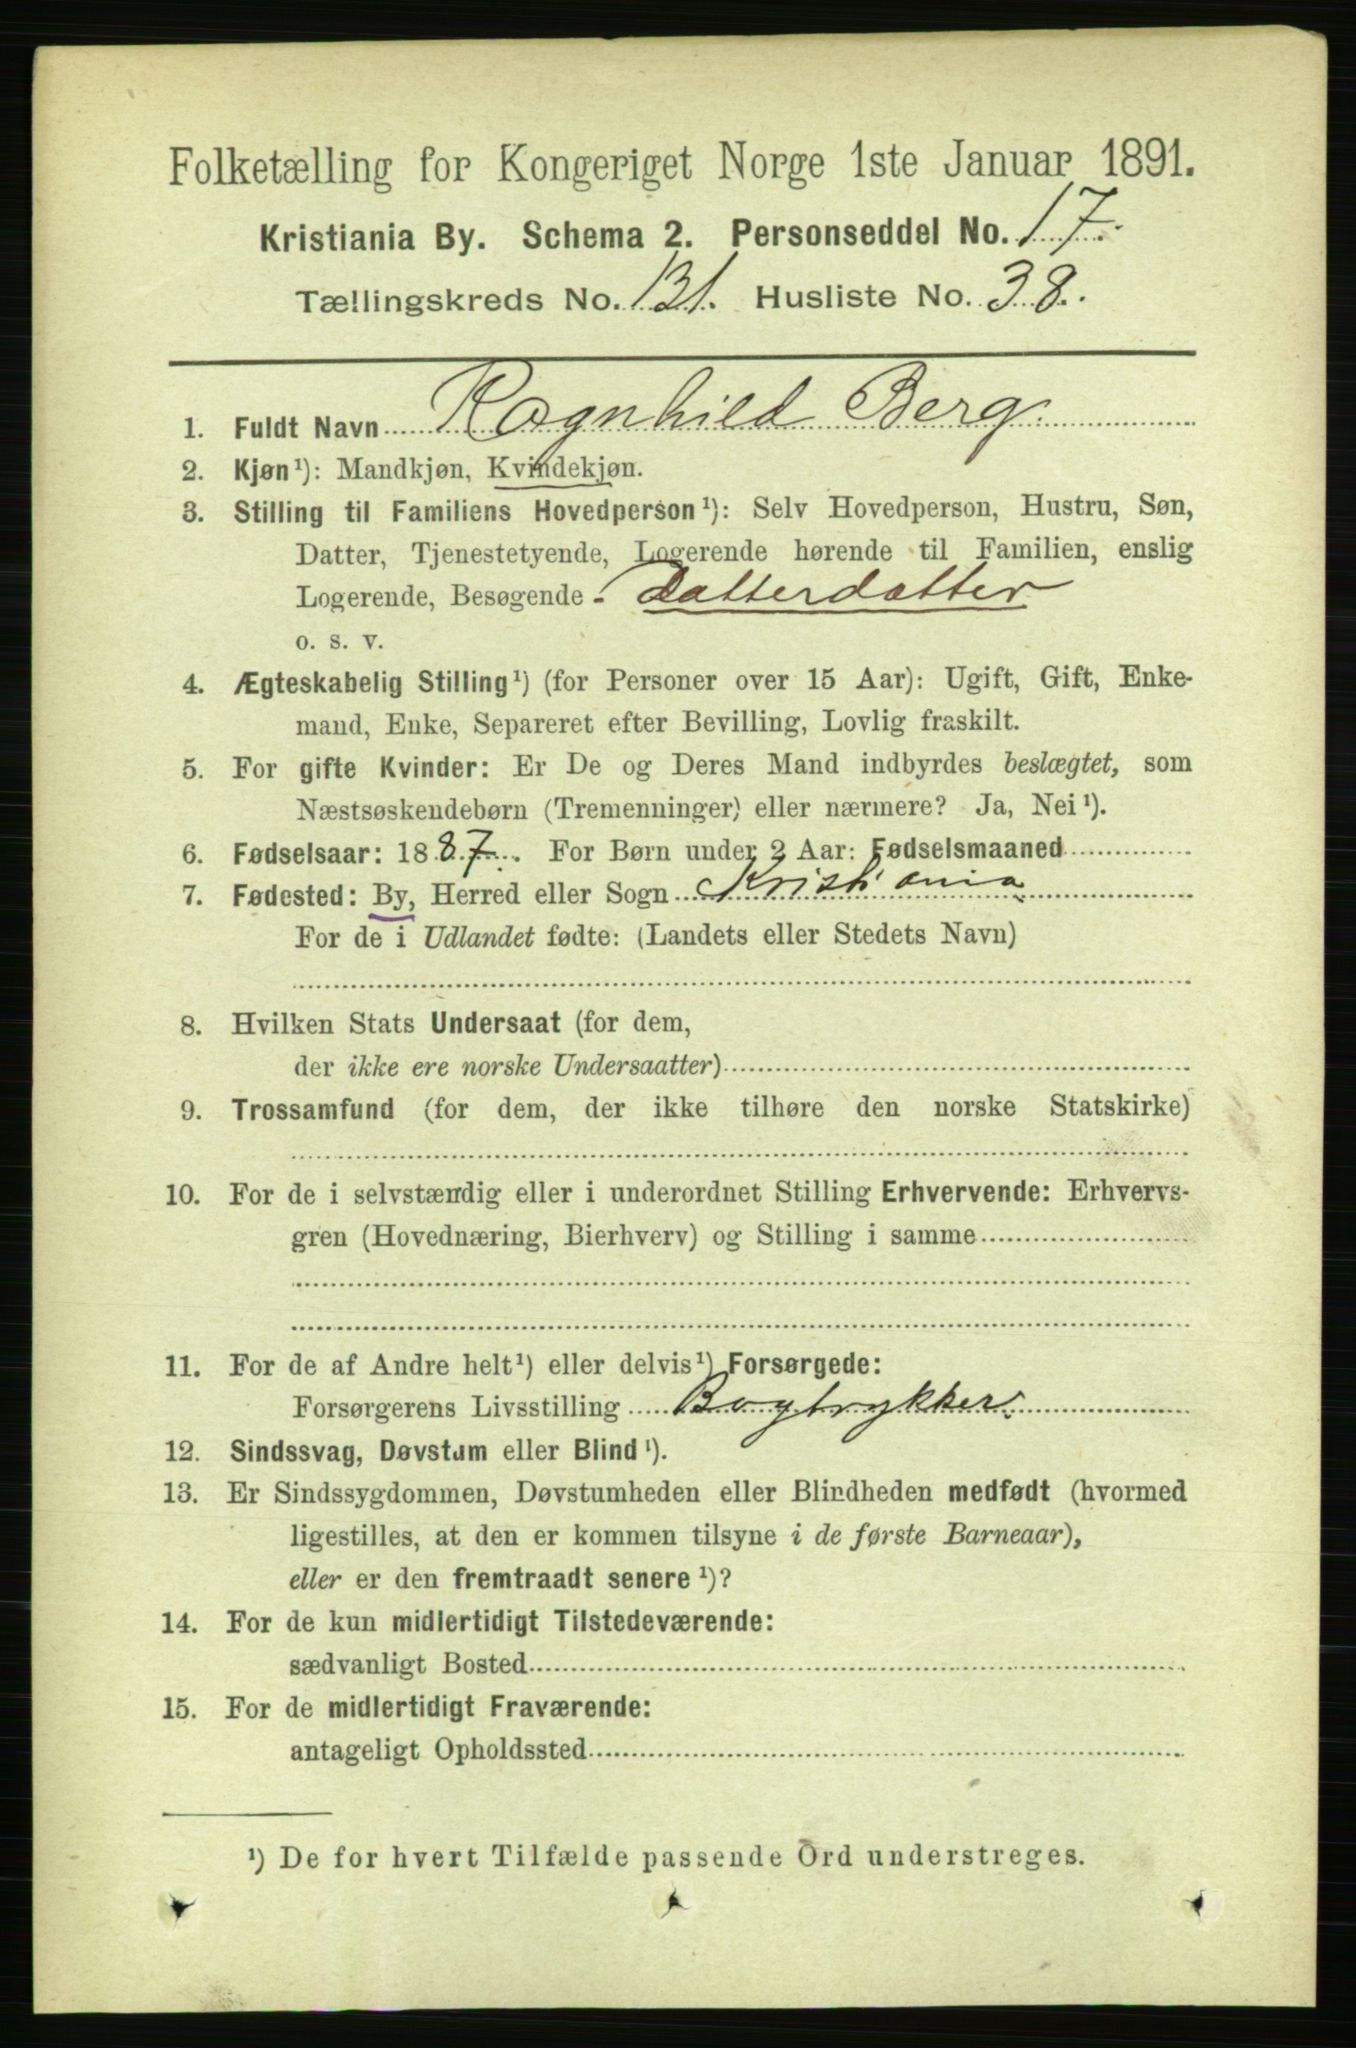 Folketælling for Kongeriget Norge 1ste Januar 1891.
Kristiania By. Schema 2. Personseddel No. 17.
Tællingskreds No. 131. Husliste No. 38.
1. Fuldt Navn Ragnhild Berg.
2. Kjøn¹): Mandkjøn, Kvindekjøn.
3. Stilling til Familiens Hovedperson¹): Selv Hovedperson, Hustru, Søn,
Datter, Tjenestetyende, Logerende hørende til Familien, enslig
Logerende, Besøgende - Datterdatter
o. s. v.
4. Ægteskabelig Stilling¹) (for Personer over 15 Aar): Ugift, Gift, Enke-
mand, Enke, Separeret efter Bevilling, Lovlig fraskilt.
5. For gifte Kvinder: Er De og Deres Mand indbyrdes beslægtet, som
Næstsøskendebørn (Tremenninger) eller nærmere? Ja, Nei¹).
6. Fødselsaar: 1887. For Børn under 2 Aar: Fødselsmaaned
7. Fødested: By, Herred eller Sogn Kristiania
For de i Udlandet fødte: (Landets eller Stedets Navn)
8. Hvilken Stats Undersaat (for dem,
der ikke ere norske Undersaatter)
9. Trossamfund (for dem, der ikke tilhøre den norske Statskirke)
10. For de i selvstændig eller i underordnet Stilling Erhvervende: Erhvervs-
gren (Hovednæring, Bierhverv) og Stilling i samme
11. For de af Andre helt¹) eller delvis¹) Forsørgede:
Forsørgerens Livsstilling Bogtrykker.
12. Sindssvag, Døvstum eller Blind¹).
13. Er Sindssygdommen, Døvstumheden eller Blindheden medfødt (hvormed
ligestilles, at den er kommen tilsyne i de første Barneaar),
eller er den fremtraadt senere¹)?
14. For de kun midlertidigt Tilstedeværende:
sædvanligt Bosted
15. For de midlertidigt Fraværende:
antageligt Opholdssted
¹) De for hvert Tilfælde passende Ord understreges.